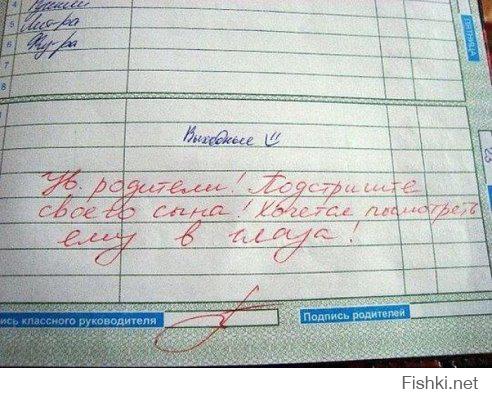 4
5 Лит-ра
6
7
8
ПЯТНИЦА
Выходные
Ув. родители! Подстригите
своего сына! Хочется посмотреть
ему в глаза!
ись классного руководителя
Подпись родителей
Fishki.net